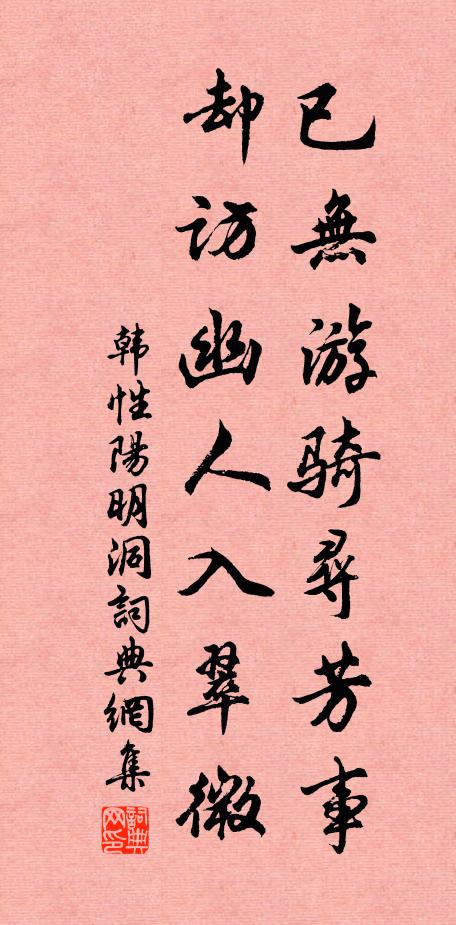 已無游騎尋芳事
却訪幽人入翠微
韩性陽明洞詞典網集
詞典网印